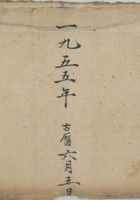 一九五五年
古曆六月五日